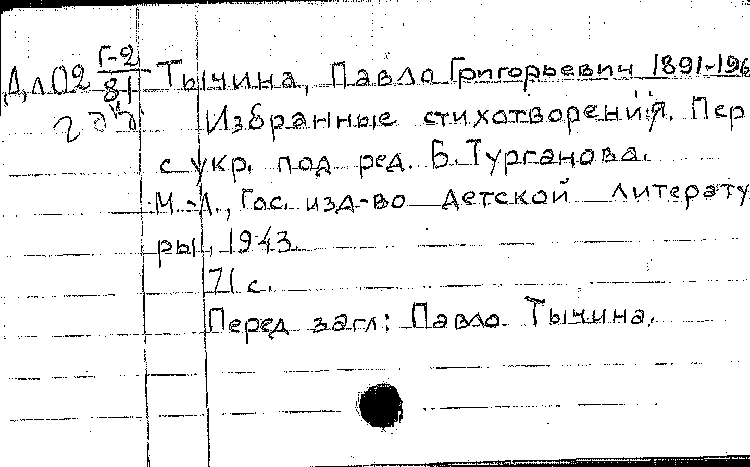 Дл02 Г-2/81 Тычина, Павло Григорьевич 1891-196
Избранные стихотворения. Пер
с укр. под ред. Б. Турганова.
М.-Л., Гос. изд-во детской литерату
ры, 1943.
71 с.
Перед загл: Павло Тычина.